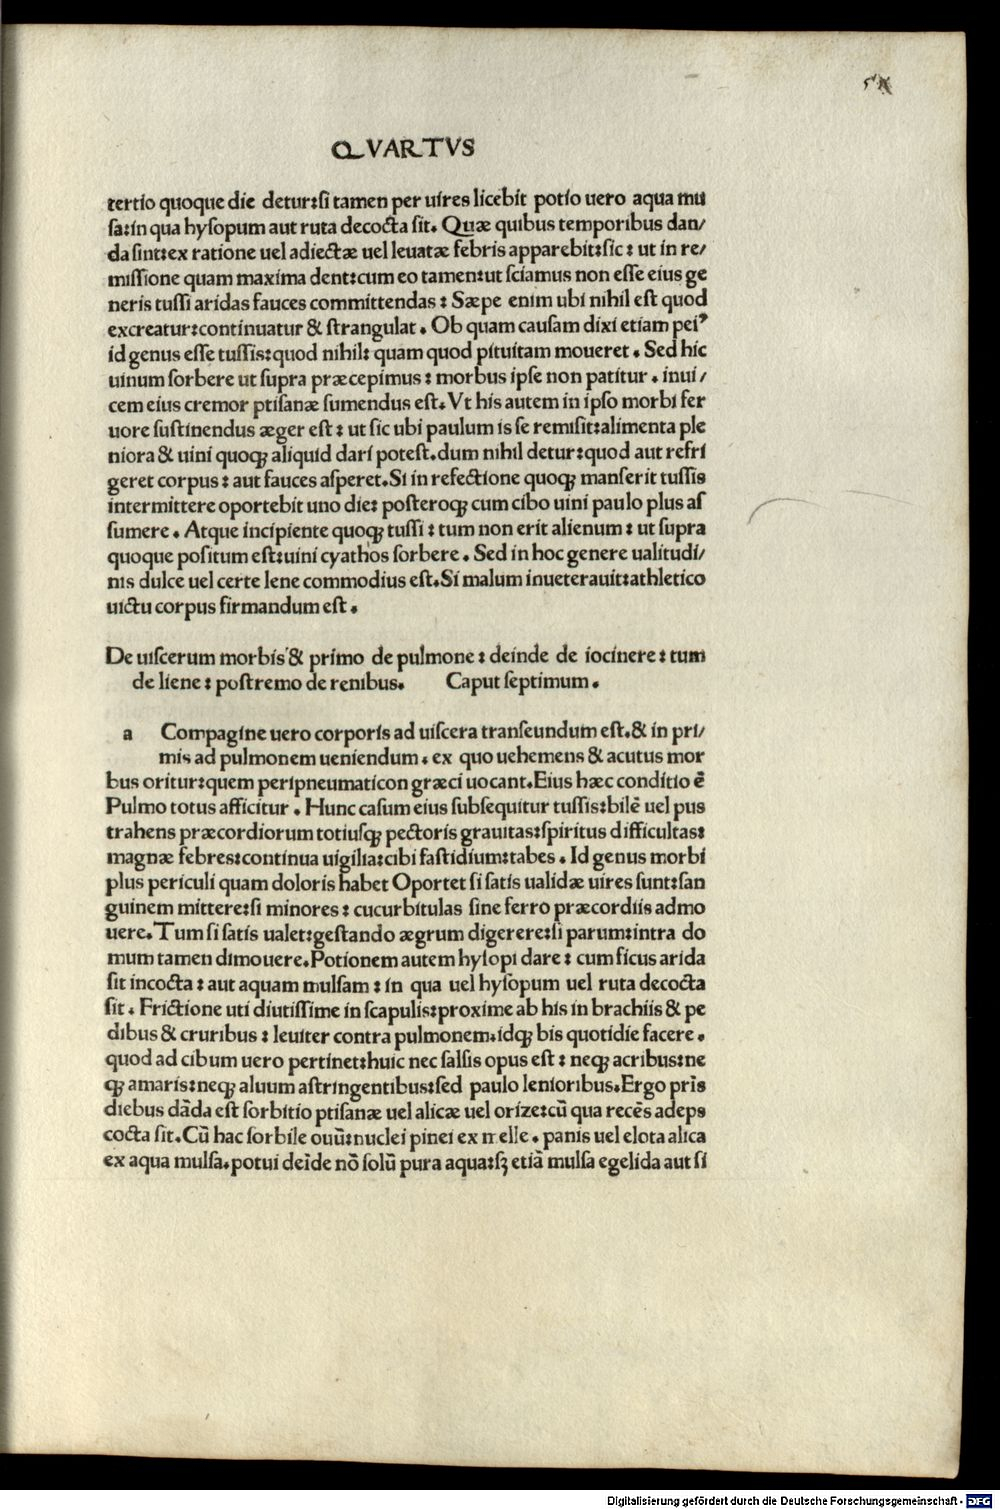 QVARTVS
tertio quoque die detur:si tamen per uires licebit potio uero aqua mu
sa:in qua hysopum aut ruta decocta sit. Quæ quibus temporibus dan/
da sint:ex ratione uel adiectæ uel leuatæ febris apparebit:sic: ut in re/
missione quam maxima dent:cum eo tamen:ut sciamus non esse eius ge
neris tussi aridas fauces committendas: Sæpe enim ubi nihil est quod
excreatur:continuatur & strangulat. Ob quam causam dixi etiam peiꝰ
id genus esse tussis:quod nihil: quam quod pituitam moueret. Sed hic
uinum sorbere ut supra præcepimus: morbus ipse non patitur. inui/
cem eius cremor ptisanæ sumendus est. Vt his autem in ipso morbi fer
uore sustinendus æger est: ut sic ubi paulum is se remisit:alimenta ple
niora & uini quoqꝫ aliquid dari potest. dum nihil detur:quod aut refri
geret corpus: aut fauces asperet. Si in refectione quoqꝫ manserit tussis
intermittere oportebit uno die: posteroqꝫ cum cibo uini paulo plus as
sumere. Atque incipiente quoqꝫ tussi: tum non erit alienum: ut supra
quoque positum est:uini cyathos sorbere. Sed in hoc genere ualitudi/
nis dulce uel certe lene commodius est. Si malum inueterauit:athletico
uictu corpus firmandum est.
De uiscerum morbis & primo de pulmone: deinde de iocinere: tum
de liene: postremo de renibus. Caput septimum.
a Compagine uero corporis ad uiscera transeundum est. & in pri/
mis ad pulmonem ueniendum. ex quo uehemens & acutus mor
bus oritur:quem peripneumaticon græci uocant. Eius hæc conditio ē
Pulmo totus afficitur. Hunc casum eius subsequitur tussis:bilē uel pus
trahens præcordiorum totiusqꝫ pectoris grauitas:spiritus difficultas:
magnæ febres:continua uigilia:cibi fastidium:tabes. Id genus morbi
plus periculi quam doloris habet Oportet si satis ualidæ uires sunt:san
guinem mittere:si minores: cucurbitulas sine ferro præcordiis admo
uere. Tum si satis ualet:gestando ægrum digerere:si parum:intra do
mum tamen dimouere. Potionem autem hysopi dare: cum ficus arida
sit incocta: aut aquam mulsam: in qua uel hysopum uel ruta decocta
sit. Frictione uti diutissime in scapulis:proxime ab his in brachiis & pe
dibus & cruribus: leuiter contra pulmonem. idqꝫ bis quotidie facere.
quod ad cibum uero pertinet:huic nec salsis opus est: neqꝫ acribus:ne
qꝫ amaris:neqꝫ aluum astringentibus:sed paulo lenioribus. Ergo prīs
diebus dāda est sorbitio ptisanæ uel alicæ uel orize:cū qua recēs adeps
cocta sit. Cū hac sorbile ouū:nuclei pinei ex melle. panis uel elota alica
ex aqua mulsa. potui deīde nō solū pura aqua:sꝫ etiā mulsa egelida aut si
Digitalisierung gefördert durch die Deutsche Forschungsgemeinschaft - DFG